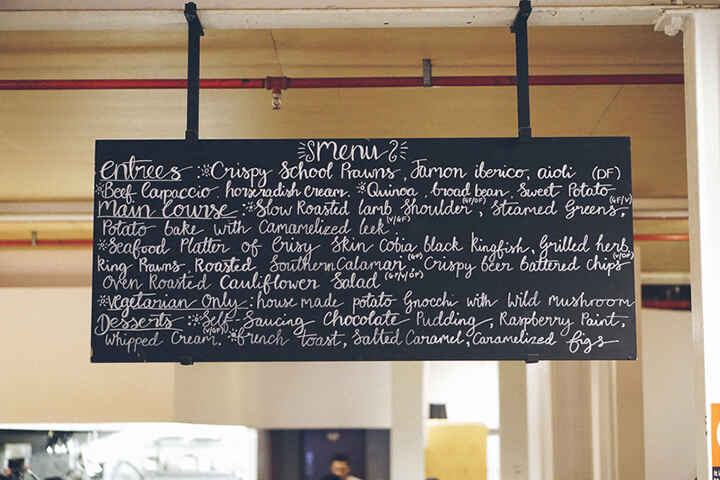 Menu
Entrees : Crispy School Prawns, Jamon iberico, aioli (DF)
Beef Carpaccio, horseradish cream. Quinoa, broad bean, Sweet Potato (GF/V)
Main Course : Slow Roasted lamb Shoulder (GF/DF), Steamed Greens,
Potato bake with Camamelized leek (V/GF)
Seafood Platter of Crisy Skin Cobia black kingfish, Grilled herb
king Prawns Roasted Southern Calamari (GF) Crispy beer battered chips (V/DF)
Oven Roasted Cauliflower Salad (GF/V/DF)
Vegetarian Only : house made potato Gnocchi with Wild mushroom
Desserts : Self Saucing Chocolate Pudding, Raspberry Paint,
Whipped Cream. (V/GF) french toast, Salted Caramel, Caramelized figs